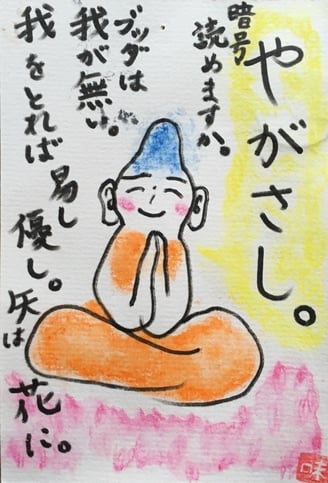 やがさし。
暗号
読めますか。
ブッダは
我が無い。
我をとれば
易し
優し。
矢は
花に。
味